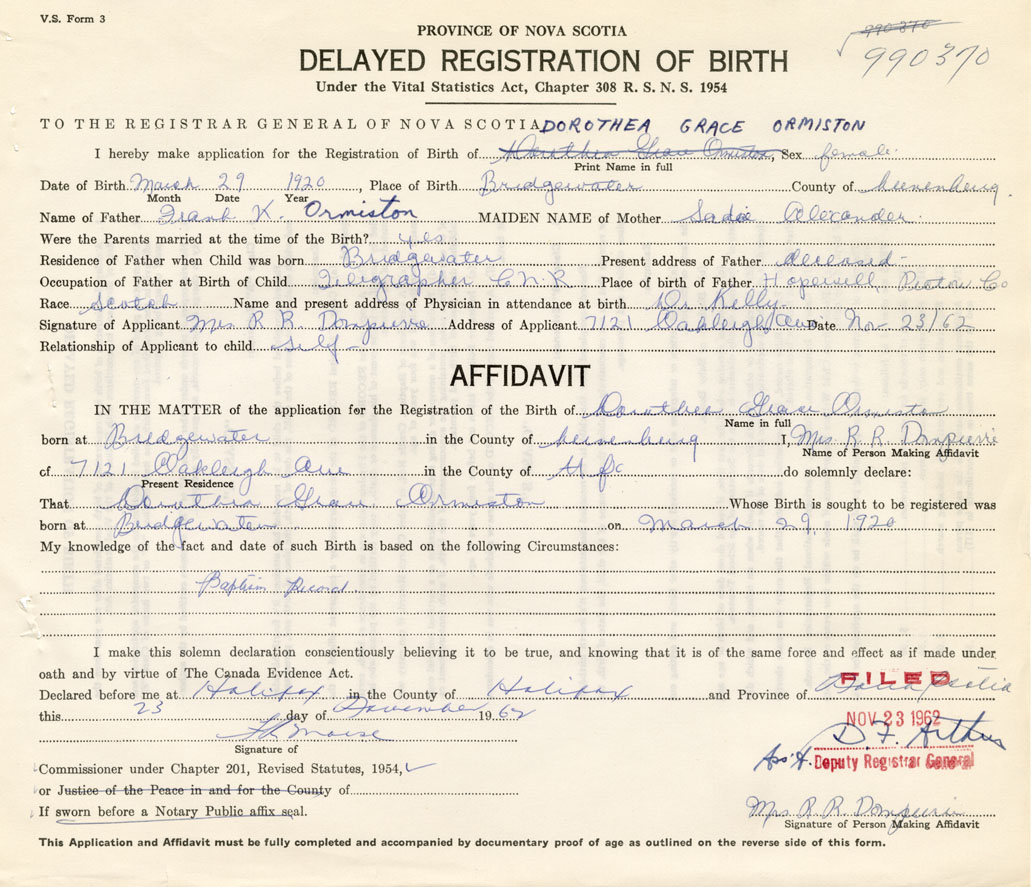 V.S. Form 3
PROVINCE OF NOVA SCOTIA
990370
990370
DELAYED REGISTRATION OF BIRTH
Under the Vital Statistics Act, Chapter 308 R. S. N. S. 1954
TO THE REGISTRAR GENERAL OF NOVA SCOTIA DOROTHEA GRACE ORMISTON
I hereby make application for the Registration of Birth of Dorothea Grace Ormiston, Sex female
Print Name in full
Date of Birth March 29 1920, Place of Birth Bridgewater County of Lunenburg.
Month Date Year
Name of Father Frank K. Ormiston MAIDEN NAME of Mother Sadie Alexander
Were the Parents married at the time of the Birth? yes
Residence of Father when Child was born Bridgewater Present address of Father deceased -
Occupation of Father at Birth of Child Telegrapher C N R Place of birth of Father Hopewell, Pictou Co
Race Scotch Name and present address of Physician in attendance at birth Dr Kelly.
Signature of Applicant Mrs R R Address of Applicant 7121 Oakleigh Ave Date Nov 23/62
Relationship of Applicant to child self -
AFFIDAVIT
IN THE MATTER of the application for the Registration of the Birth of Dorothea Grace Ormiston
Name in full
born at Bridgewater in the County of Lunenburg I, Mrs. R R
Name of Person Making Affidavit
of 7121 Oakleigh Ave in the County of Hfx do solemnly declare:
Present Residence
That Dorothea Grace Ormiston Whose Birth is sought to be registered was
born at Bridgewater on March 29, 1920
My knowledge of the fact and date of such Birth is based on the following Circumstances:
Baptism Record.
I make this solemn declaration conscientiously believing it to be true, and knowing that it is of the same force and effect as if made under
oath and by virtue of The Canada Evidence Act.
Declared before me at Halifax in the County of Halifax and Province of Nova Scotia
FILED
this 23 day of November 1962
NOV 23 1962
D. F. Arthur
Signature of
Ass't. Deputy Registrar General
Commissioner under Chapter 201, Revised Statutes, 1954,
or Justice of the Peace in and for the County of
If sworn before a Notary Public affix seal.
Mrs R R
Signature of Person Making Affidavit
This Application and Affidavit must be fully completed and accompanied by documentary proof of age as outlined on the reverse side of this form.